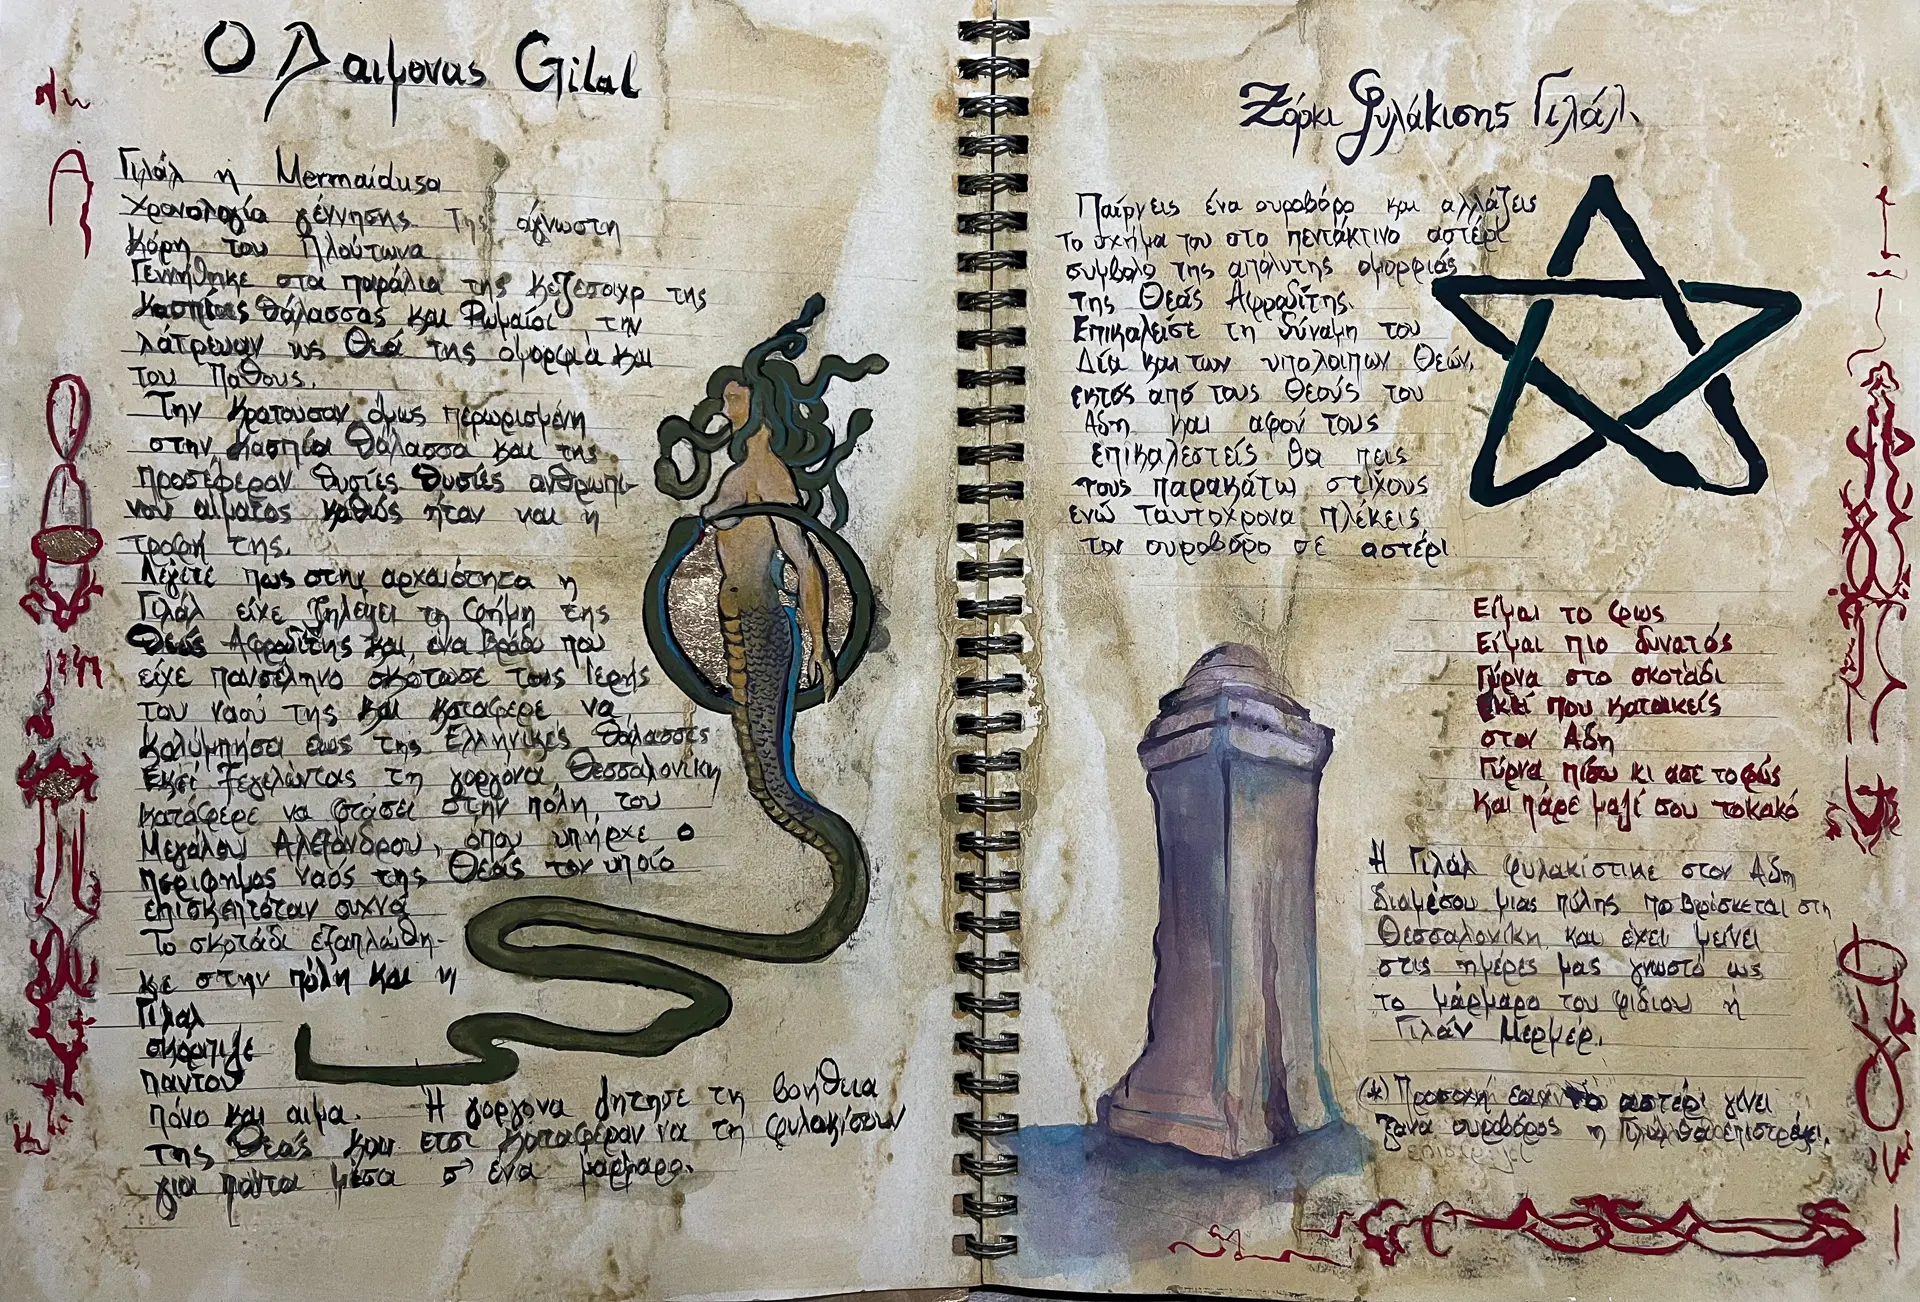 Ο Δαιμονας Gilal
Γιλάλ ή Mermaidusa
Χρονολογία γέννησης Της άγνωστη
Κόρη του Πλούτωνα
Γεννήθηκε στα παράλια της Κεζεσαχρ της
Κασπίας θάλασσας και Ρωμαίοι την
λάτρευαν ως Θεά της ομορφιά και
του Πάθους.
Την Κρατουσαν όμως περιορισμένη
στην Κασπία θάλασσα και της
προσέφεραν θυσίες θυσίες ανθρωπι-
νου αίματος καθώς ήταν και η
τροφή της.
Λέγετε πως στην αρχαιότητα η
Γιλάλ είχε ζηλέψει τη φήμη της
Θεάς Αφροδίτης και ένα Βράδυ που
είχε πανσέληνο σκότωσε τους Ιερής
του ναού της και κατάφερε να
κολυμπήσει έως της Ελληνικές θάλασσες
Εκεί ξεγελώντας τη γοργόνα Θεσσαλονίκη
κατάφερε να φτάσει στην πόλη του
Μεγάλου Αλεξάνδρου, όπου υπήρχε ο
περιφημος ναός της Θεάς τον οποίο
επισκεπτόταν συχνά
Το σκοτάδι εξαπλώθη-
κε στην πόλη και η
Γιλαλ
σκόρπιζε
παντού
πόνο και αιμα. Η γοργονα ζητησε τη βοηθεια
της Θεάς και ετσι καταφέραν να τη φυλακίσουν
για πάντα μέσα σ' ένα μάρμαρο.
Ζόρκι Φυλάκισης Γιλάλ.
Παίρνεις ένα ουροβόρο και αλλάζεις
το σχήμα του στο πεντάκτινο αστέρι
συμβολο της απόλυτης ομορφιάς
της Θεάς Αφροδίτης.
Επικαλείσε τη δύναμη του
Δία και των υπολοιπων Θεών,
εκτός από τους Θεούς του
Αδη και αφού τους
επικαλεστείς θα πεις
τους παρακάτω στίχους
ενώ ταυτόχρονα πλέκεις
τον ουροβόρο σε αστέρι
Είμαι το φως
Είμαι πιο δυνατός
Γύρνα στο σκοτάδι
Εκεί που κατοικείς
στον Αδη
Γύρνα πίσω κι ασε το φώς
και πάρε μαζί σου το κακό
Η Γιλάλ φυλακίστικε στον Αδη
διαμέσου μιας πύλης πο βρίσκεται στη
Θεσσαλονίκη και έχει μείνει
στις ημέρες μας γνωστό ως
το μάρμαρο του φιδιου ή
Γιλάν Μερμέρ.
(*) Προσοχή εαν το αστέρι γίνει
ξανα ουροβόρος η Γιλάλ θα επιστρέψει.